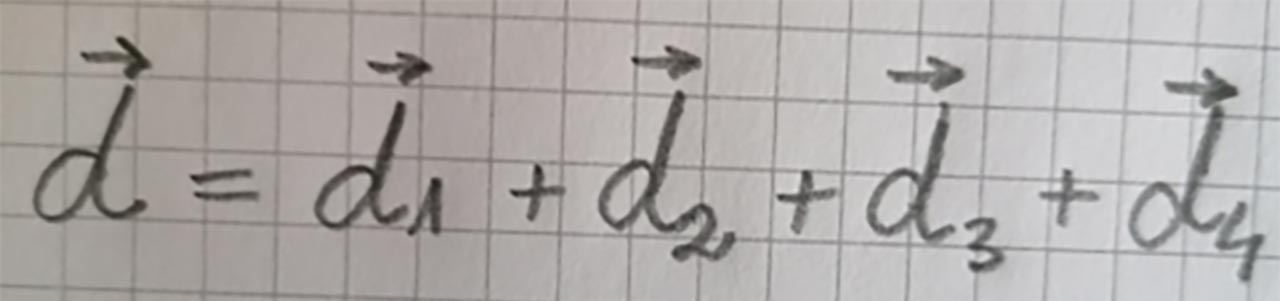 $\vec{d} = \vec{d}_1 + \vec{d}_2 + \vec{d}_3 + \vec{d}_4$